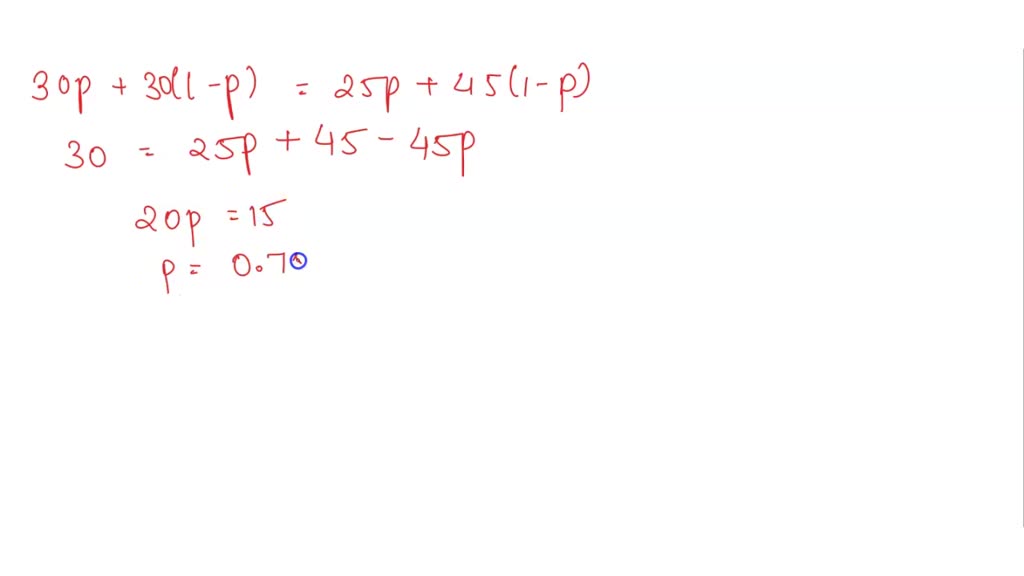 30p + 30(1-p) = 25p + 45(1-p)
30 = 25p + 45 - 45p
20p = 15
p = 0.7